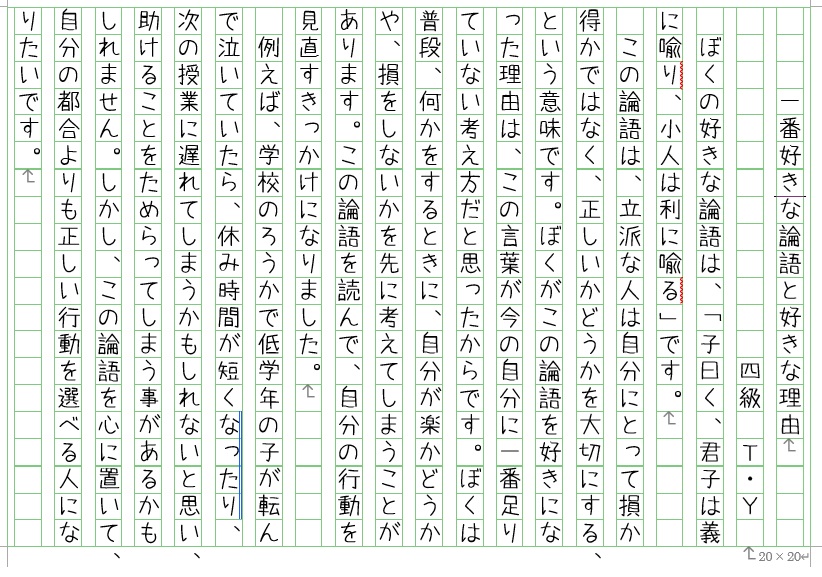 一番好きな論語と好きな理由
四級　Ｔ・Ｙ
ぼくの好きな論語は、「子曰く、君子は義
に喩り、小人は利に喩る」です。
この論語は、立派な人は自分にとって損か
得かではなく、正しいかどうかを大切にする、
という意味です。ぼくがこの論語を好きにな
った理由は、この言葉が今の自分に一番足り
ていない考え方だと思ったからです。ぼくは
普段、何かをするときに、自分が楽かどうか
や、損をしないかを先に考えてしまうことが
あります。この論語を読んで、自分の行動を
見直すきっかけになりました。
例えば、学校のろうかで低学年の子が転ん
で泣いていたら、休み時間が短くなったり、
次の授業に遅れてしまうかもしれないと思い、
助けることをためらってしまう事があるかも
しれません。しかし、この論語を心に置いて、
自分の都合よりも正しい行動を選べる人にな
りたいです。
20×20